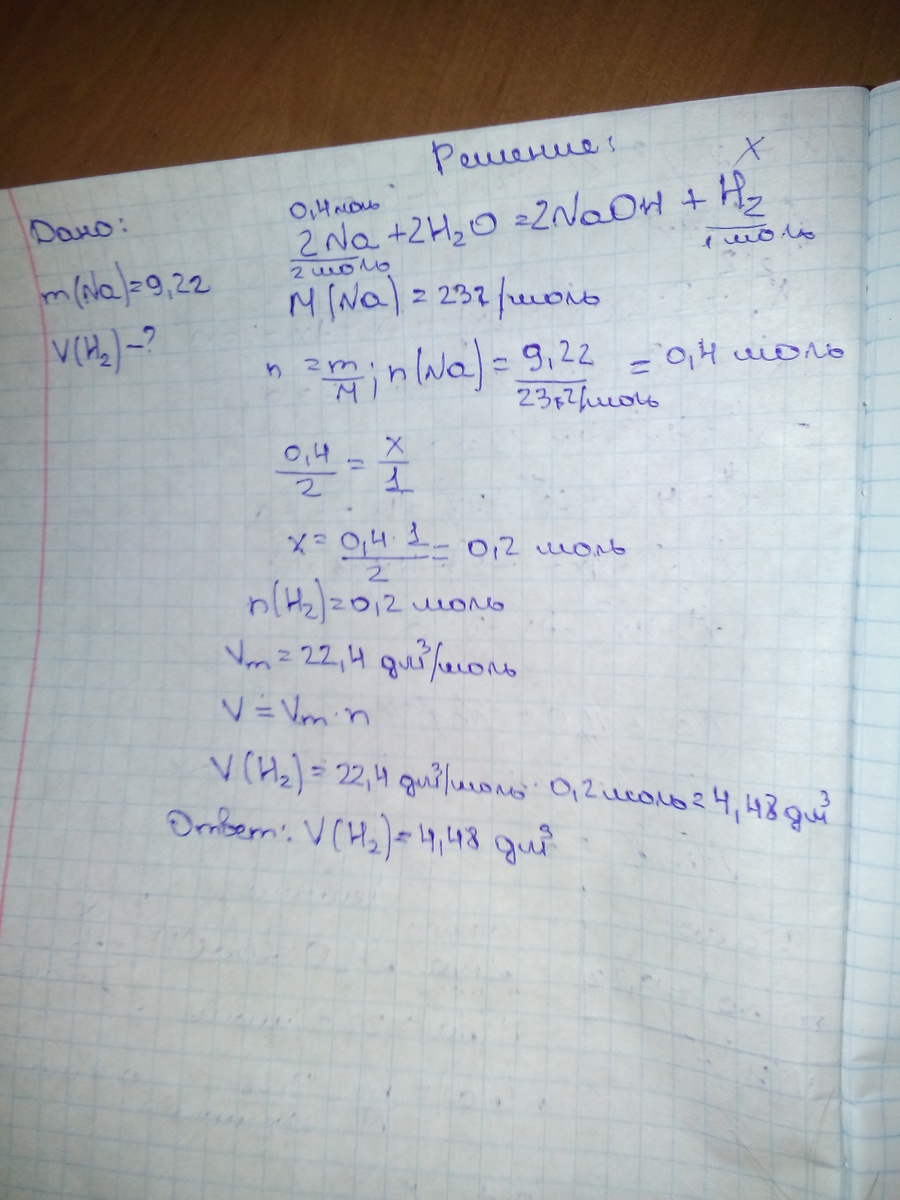 Решение:
Дано:
m(Na)=9,2г
V(H₂)-?
0,4 моль x
2Na+2H₂O=2NaOH+H₂
2 моль 1 моль
M(Na)=23г/моль
n=m/M; n(Na)=9,2г/23г/моль=0,4 моль
0,4/2=x/1
x=0,4·1/2=0,2 моль
n(H₂)=0,2 моль
Vm=22,4 дм³/моль
V=Vm·n
V(H₂)=22,4 дм³/моль·0,2 моль=4,48 дм³
Ответ: V(H₂)=4,48 дм³